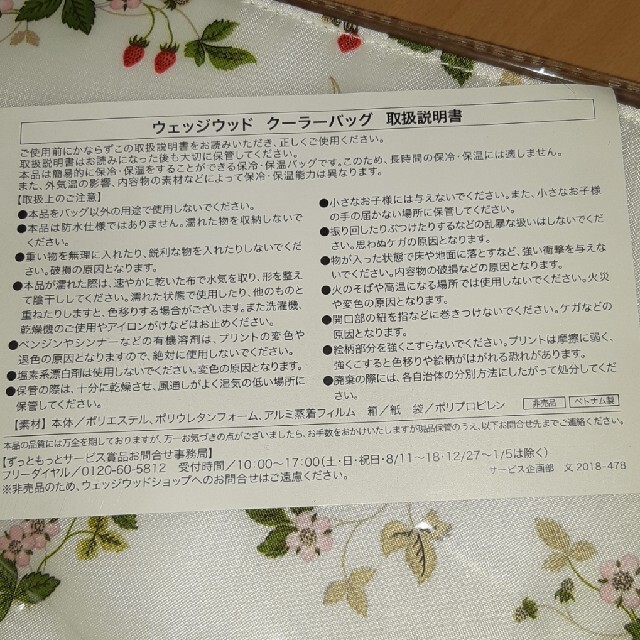 ウェッジウッド クーラーバッグ 取扱説明書
ご使用前にかならずこの取扱説明書をお読みいただき、正しくご使用ください。
取扱説明書はお読みになった後も大切に保管してください。
本品は簡易的に保冷・保温をすることができる保冷・保温バッグです。このため、長時間の保冷・保温には適しません。
また、外気温の影響、内容物の素材などによって保冷・保温能力は異なります。
【取扱上のご注意】
●本品をバッグ以外の用途で使用しないでください。
●本品は防水仕様ではありません。濡れた物を収納しないで
ください。
●重い物を無理に入れたり、鋭利な物を入れたりしないでくだ
さい。破損の原因となります。
●本品が濡れた際は、速やかに乾いた布で水気を取り、形を整え
て陰干ししてください。濡れた状態で使用したり、他のものと
重ねたりしますと、色移りする場合がございます。また洗濯機、
乾燥機のご使用やアイロンがけなどはお止めください。
●ベンジンやシンナーなどの有機溶剤は、プリントの変色や
退色の原因となりますので、絶対に使用しないでください。
●塩素系漂白剤は使用しないでください。変色の原因となります。
●保管の際は、十分に乾燥させ、風通しがよく湿気の低い場所に
保管してください。
●小さなお子様には与えないでください。また、小さなお子様
の手の届かない場所に保管してください。
●振り回したりぶつけたりするなどの乱暴な扱いはしないでくだ
さい。思わぬケガの原因となります。
●物が入った状態で床や地面に落とすなど、強い衝撃を与えな
いでください。内容物の破損などの原因となります。
●火のそばや高温になる場所では使用しないでください。火災
や変色の原因となります。
●開口部の紐を指などに巻きつけないでください。ケガなどの
原因となります。
●絵柄部分を強くこすらないでください。プリントは摩擦に弱く、
強くこすると色移りや絵柄がはがれる恐れがあります。
●廃棄の際には、各自治体の分別方法にしたがって処分してく
ださい。
【素材】本体/ポリエステル、ポリウレタンフォーム、アルミ蒸着フィルム 箱/紙 袋/ポリプロピレン
非売品 ベトナム製
本品の品質には万全を期しておりますが、万一お気づきの点がございましたら、お手数をおかけいたしますが現品保管のうえ、以下お問合せ先までご連絡ください。
【ずっともっとサービス賞品お問合せ事務局】
フリーダイヤル/0120-60-5812 受付時間/10:00~17:00(土・日・祝日・8/11~18・12/27~1/5は除く)
※非売品のため、ウェッジウッドショップへのお問合せはご遠慮ください。
サービス企画部 文 2018-478